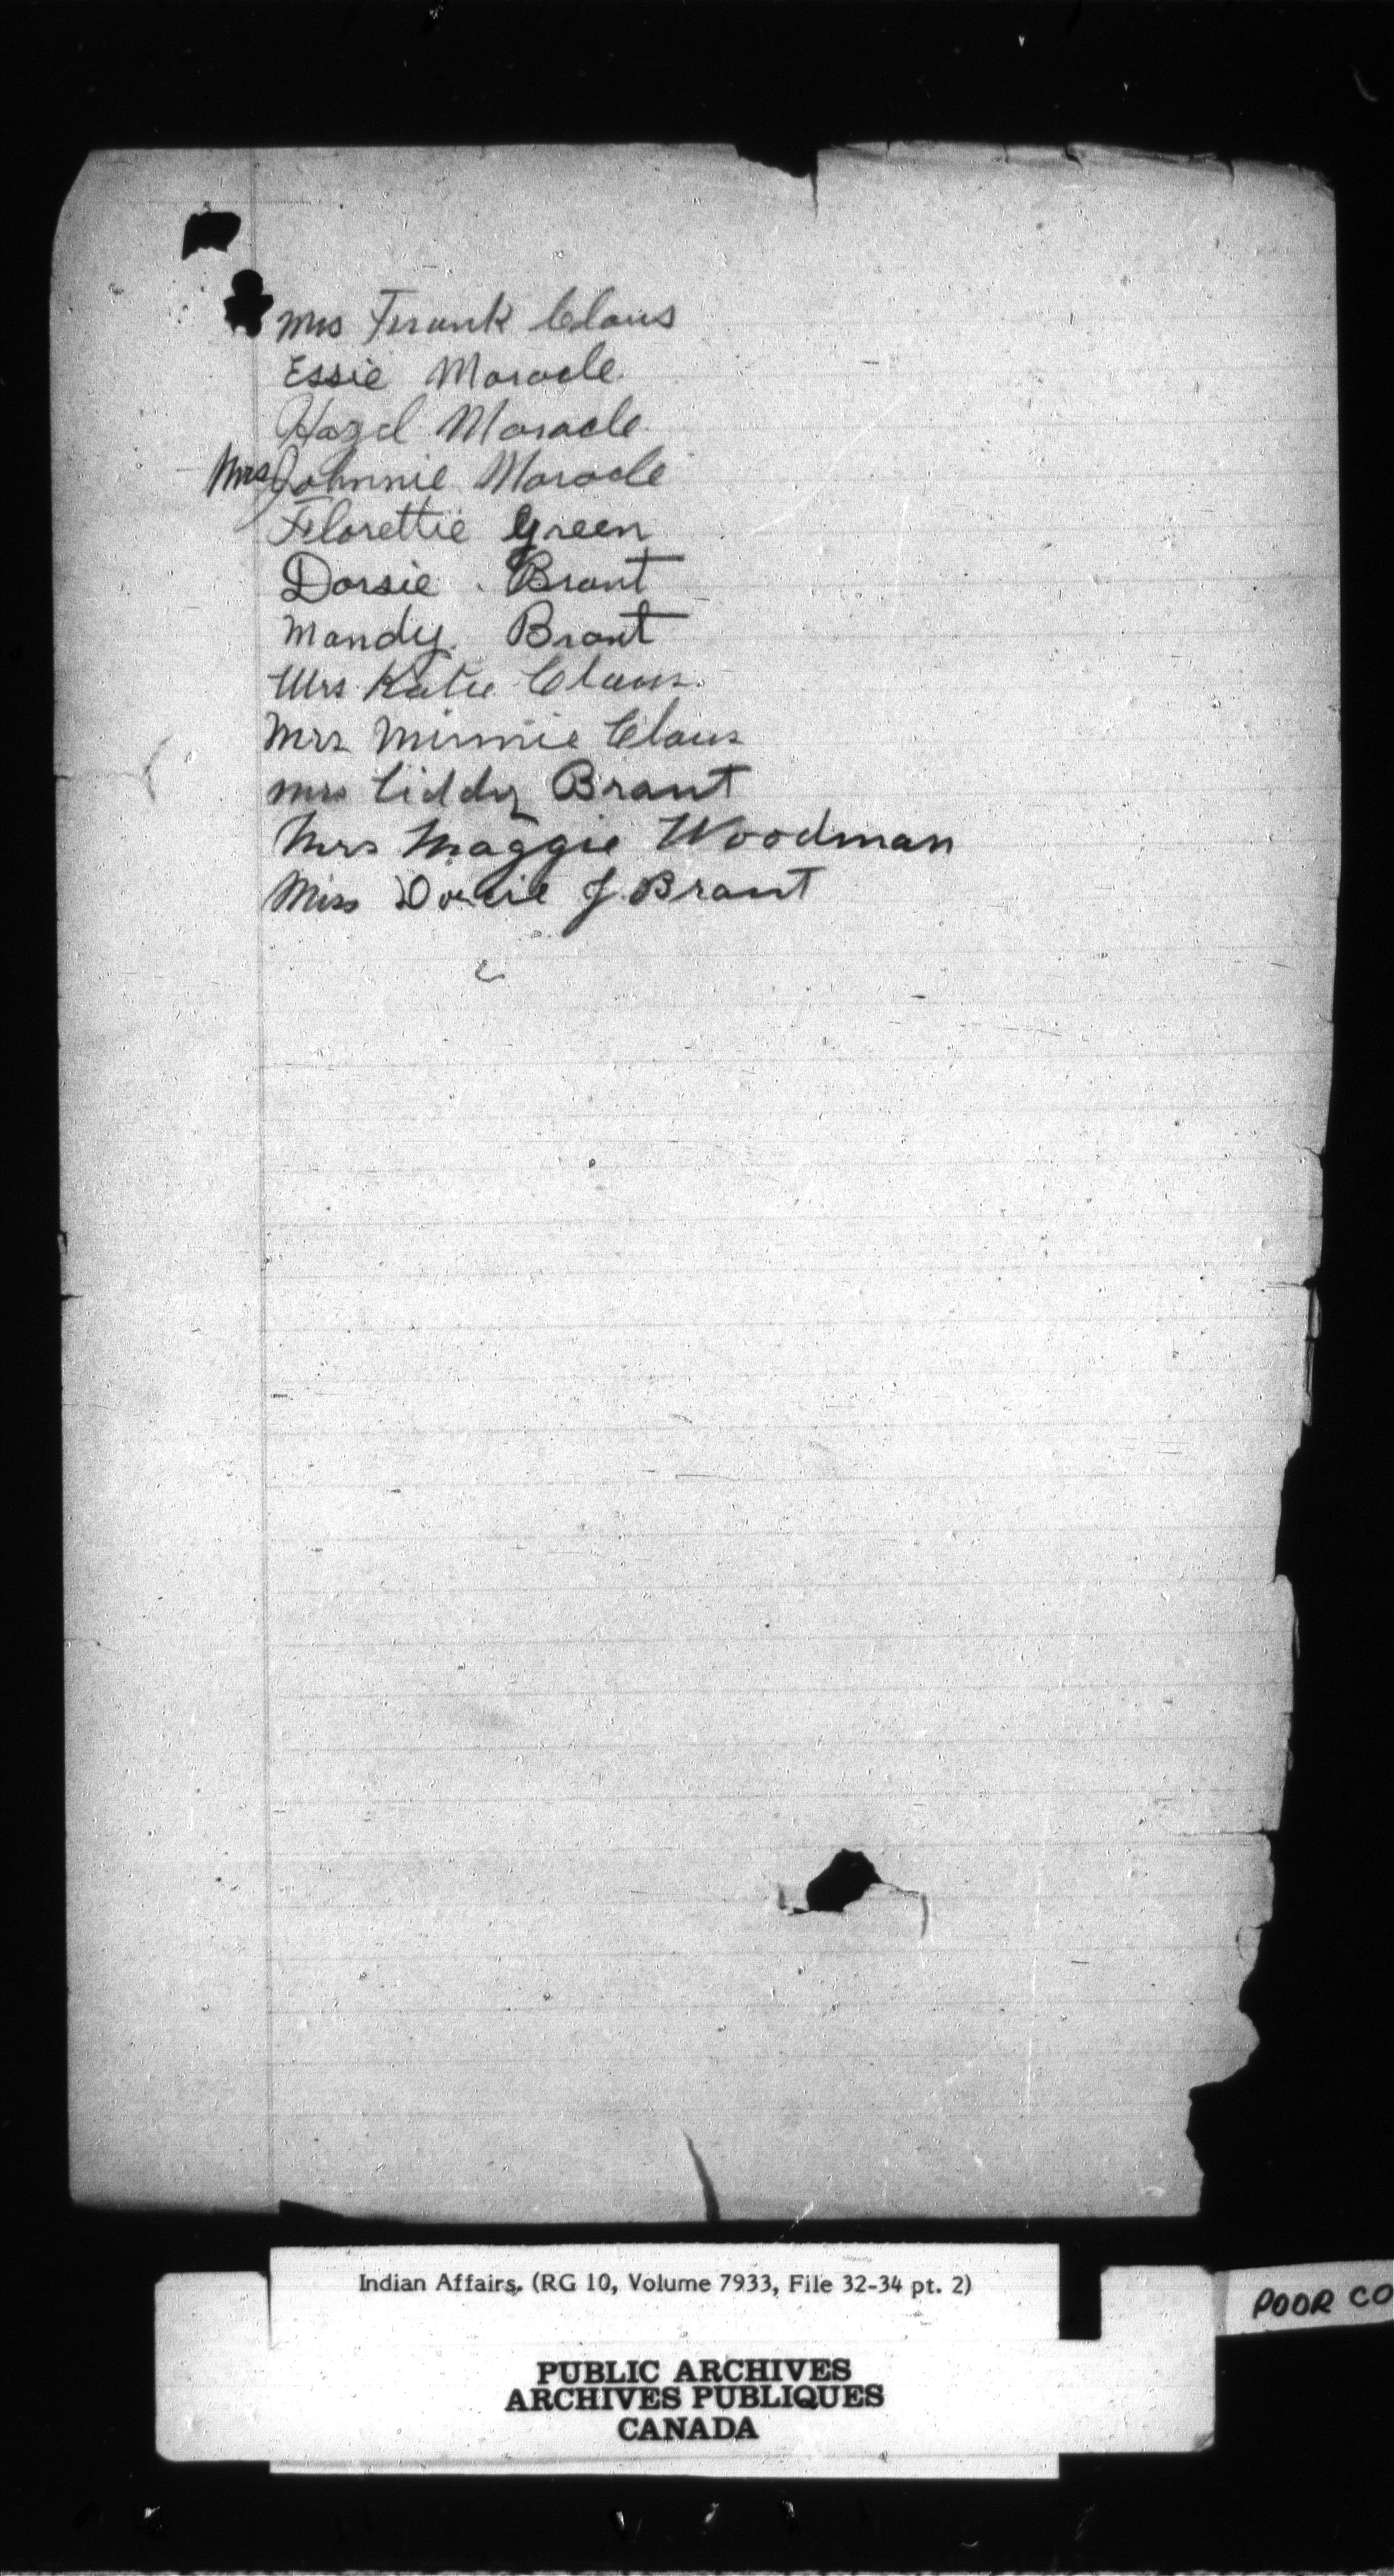 Mrs Frank Claus
Essie Maracle.
Hazel Maracle.
Mrs Johnnie Maracle
Florettie Green
Dorsie Brant
Mandy Brant
Mrs Katie Claus.
Mrs Minnie Claus
Mrs Liddy Brant
Mrs Maggie Woodman
Miss J. Brant
Indian Affairs. (RG 10, Volume 7933, File 32-34 pt. 2)
POOR CO
PUBLIC ARCHIVES
ARCHIVES PUBLIQUES
CANADA